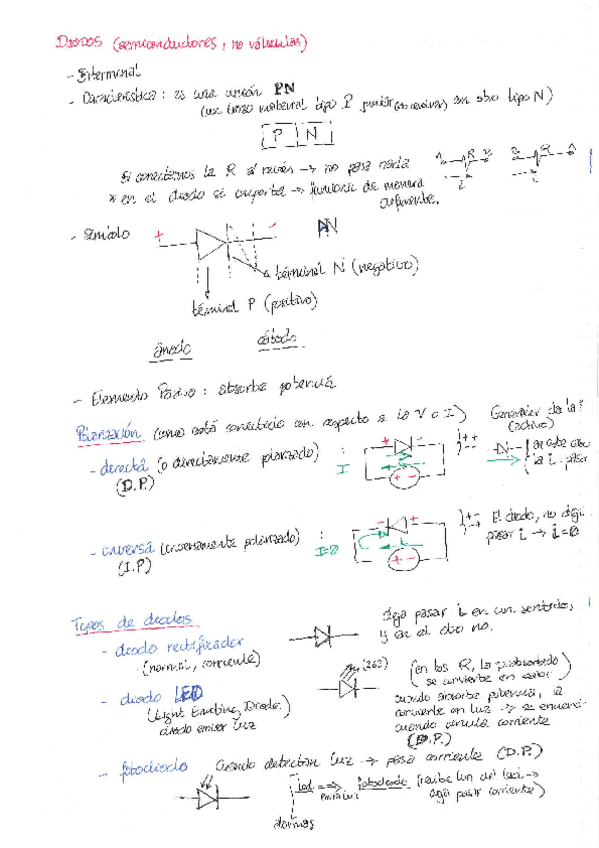 DIODOS (semiconductores, no válvulas)
- Biterminal
- Característica: es una unión PN
(un trozo material tipo P junto con otro tipo N)
P N
Si conectamos la R al revés → no pasa nada
A R B B R A
i i
* en el diodo se comporta → funciona de manera
diferente.
- Símbolo + - PN
terminal N (negativo)
terminal P (positivo)
ánodo cátodo
- Elemento Pasivo: absorbe potencia
Polarización (como está conectado con respecto a la V o I)
Generador da la
(activo)
- directa (o directamente polarizado) : + - + +
(D.P) I + -
la i pasar
- inversa (inversamente polarizado) : - + + -
El diodo, no deja
pasar i → i=0
(I.P) I=0 + -
Tipos de diodos
Deja pasar i en un sentido,
y en el otro no.
- diodo rectificador
(normal, corriente)
- diodo LED
(Light Emitting Diode)
diodo emisor luz
(en las R, la p absorbida
se convierte en calor)
cuando absorbe potencia, la
convierte en luz → se enciende
cuando circula corriente
(D.P.)
- fotodiodo Cuando detectan luz → pasa corriente (D.P.)
led ⇒ fotodiodo (recibe luz del led →
emite luz
deja pasar corriente)
alarmas